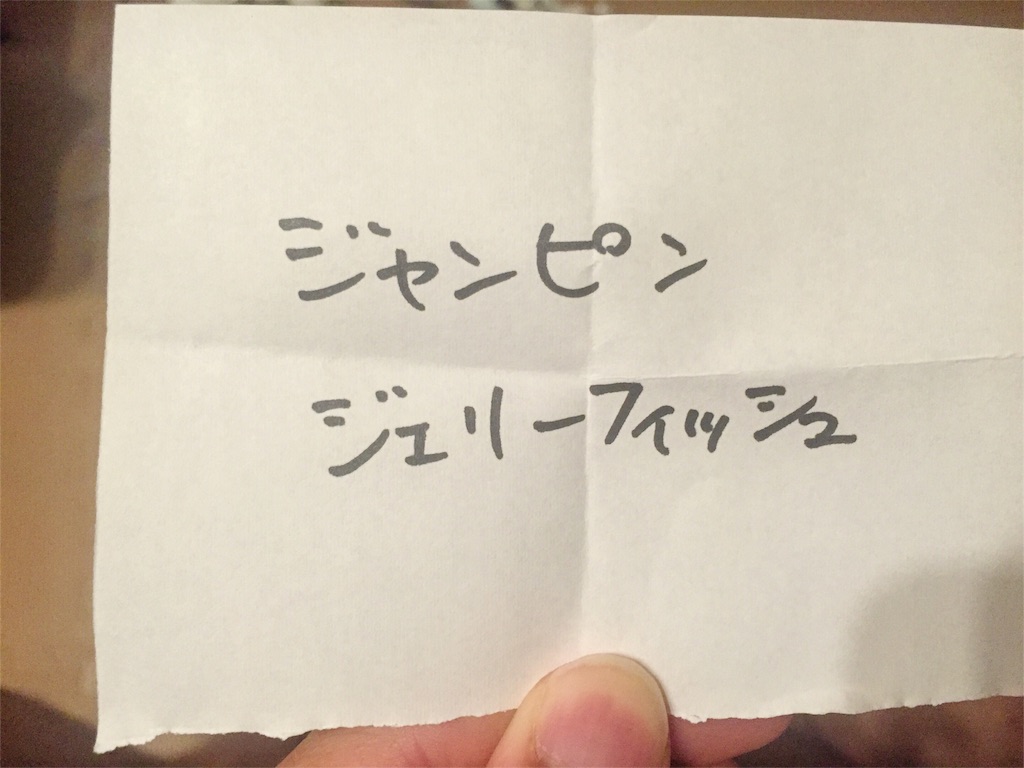 ジャンピン
ジェリーフィッシュ